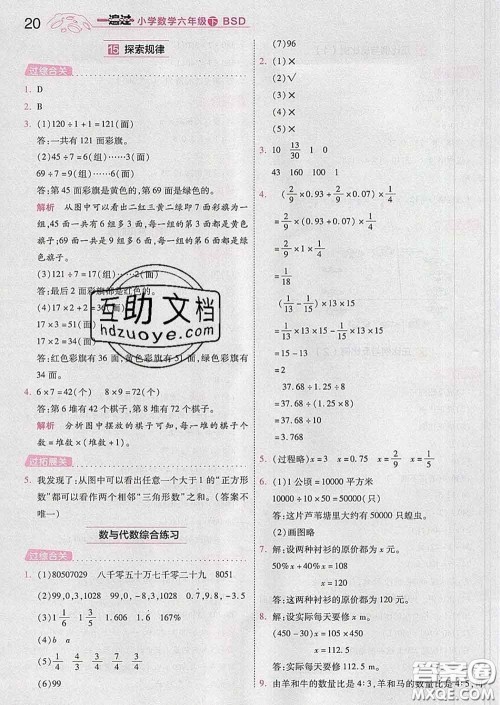 20 一遍过 小学数学六年级 下 BSD
15 探索规律
过综合关
1. D
2. B
3. (1)120÷1+1=121(面)
答:一共有121面彩旗。
(2)45÷7=6(组)……3(面)
69÷7=9(组)……6(面)
答:第45面彩旗是黄色的,第69面是绿色的。
解析 从图中可以看出二红三黄二绿即7面彩旗为一
(3)121÷7=17(组)……2(面)
答:最后2面彩旗都是红色的。
(4)17×2+2=36(面)
17×3=51(面)
17×2=34(面)
答:红色彩旗有36面,黄色彩旗有51面,绿色彩旗有
34面。
4. 6×7=42(个) 8×9=72(个)
答:第6堆有42个棋子,第8堆有72个棋子。
解析 分析图中摆放的棋子可知,每一堆的棋子个数
=堆数×(堆数+1)。
过拓展关
5. 我发现了:从图中可以看出任意一个大于1的“正方形
数”都可以看作两个相邻“三角形数”之和。(答案不
唯一)
数与代数综合练习
过综合关
1. (1)80507029 八千零五十万七千零二十九 8051
(2)99,0,3,1028 99,0,1028 99,0,1028
(3)1 1/6 1 3/4 1.606 1.6̇ 167%
(4)b a
(5)4/5 1 3/5
(6)99
(7)96
2. (1)×
(2)×
(3)✓
(4)×
(5)×
3. 10 13/30 1 0
43 160 100 1
4. (2/9×0.93+2/9×0.07)×1/4
=2/9×(0.93+0.07)×1/4
=2/9×1/4
=1/18
(1/13-1/15)×13×15
=1/13×13×15-1/15×13×15
=15-13
=2
37.68÷1/3÷10
=37.68×3÷10
=11.304
5. (过程略)x=3 x=0.75 x=2/9 x=1/5
6. (1)1公顷=10000平方米
10000÷10×50=50000(只)
答:这片芦苇塘里大约有50000只蝗虫。
(2)画图略
7. 解:设两种衬衫的原价都为x元。
50%x+40%x=108
x=120
答:两种衬衫的原价都为120元。
8. 解:设实际每天要修x m。
(450-30)x=105×450
x=112.5
答:实际每天要修112.5 m。
9. 由羊和牛的数量比是4:3,羊和马的数量比是4:5,可
互助文档
hdzuoye.com
答案圈
MXQE.COM